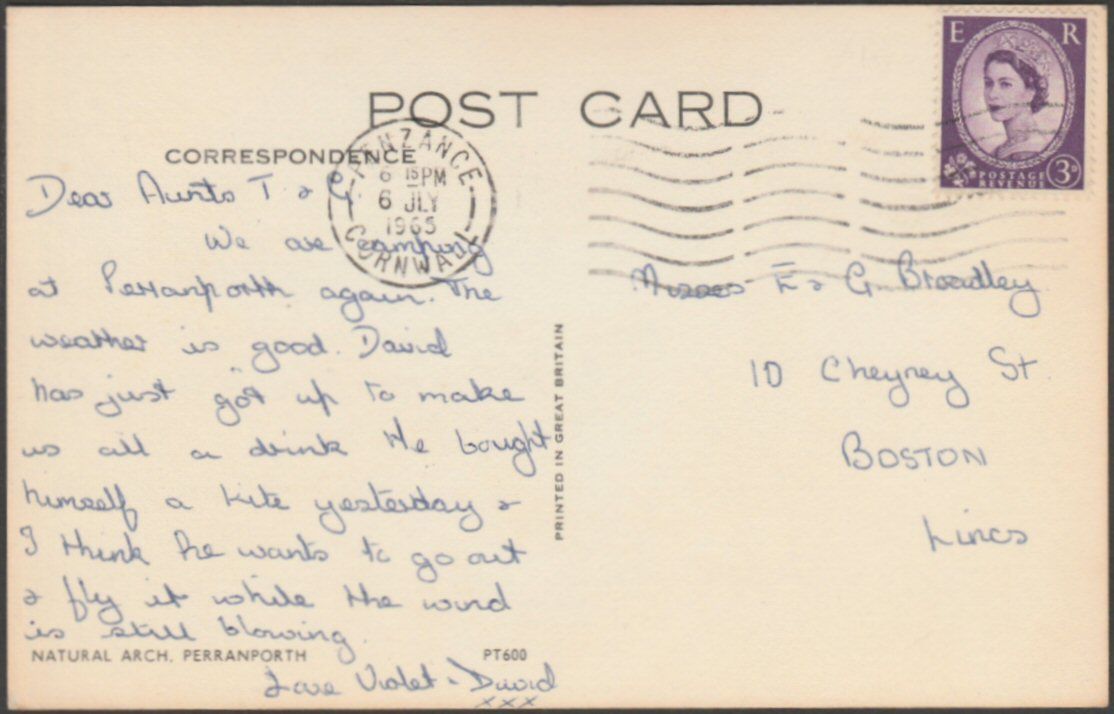 POST CARD
CORRESPONDENCE
PENZANCE
6 15 PM
6 JLY
1965
CORNWALL
E R
POSTAGE
REVENUE
3D
Dear Aunts T & G.
We are camping
at Perranporth again. The
weather is good. David
has just got up to make
us all a drink He bought
himself a kite yesterday &
I think he wants to go out
& fly it while the wind
is still blowing.
Love Violet & David
xxx
NATURAL ARCH, PERRANPORTH
PT600
PRINTED IN GREAT BRITAIN
Misses E & G Broadley
10 Cheyney St
BOSTON
Lincs